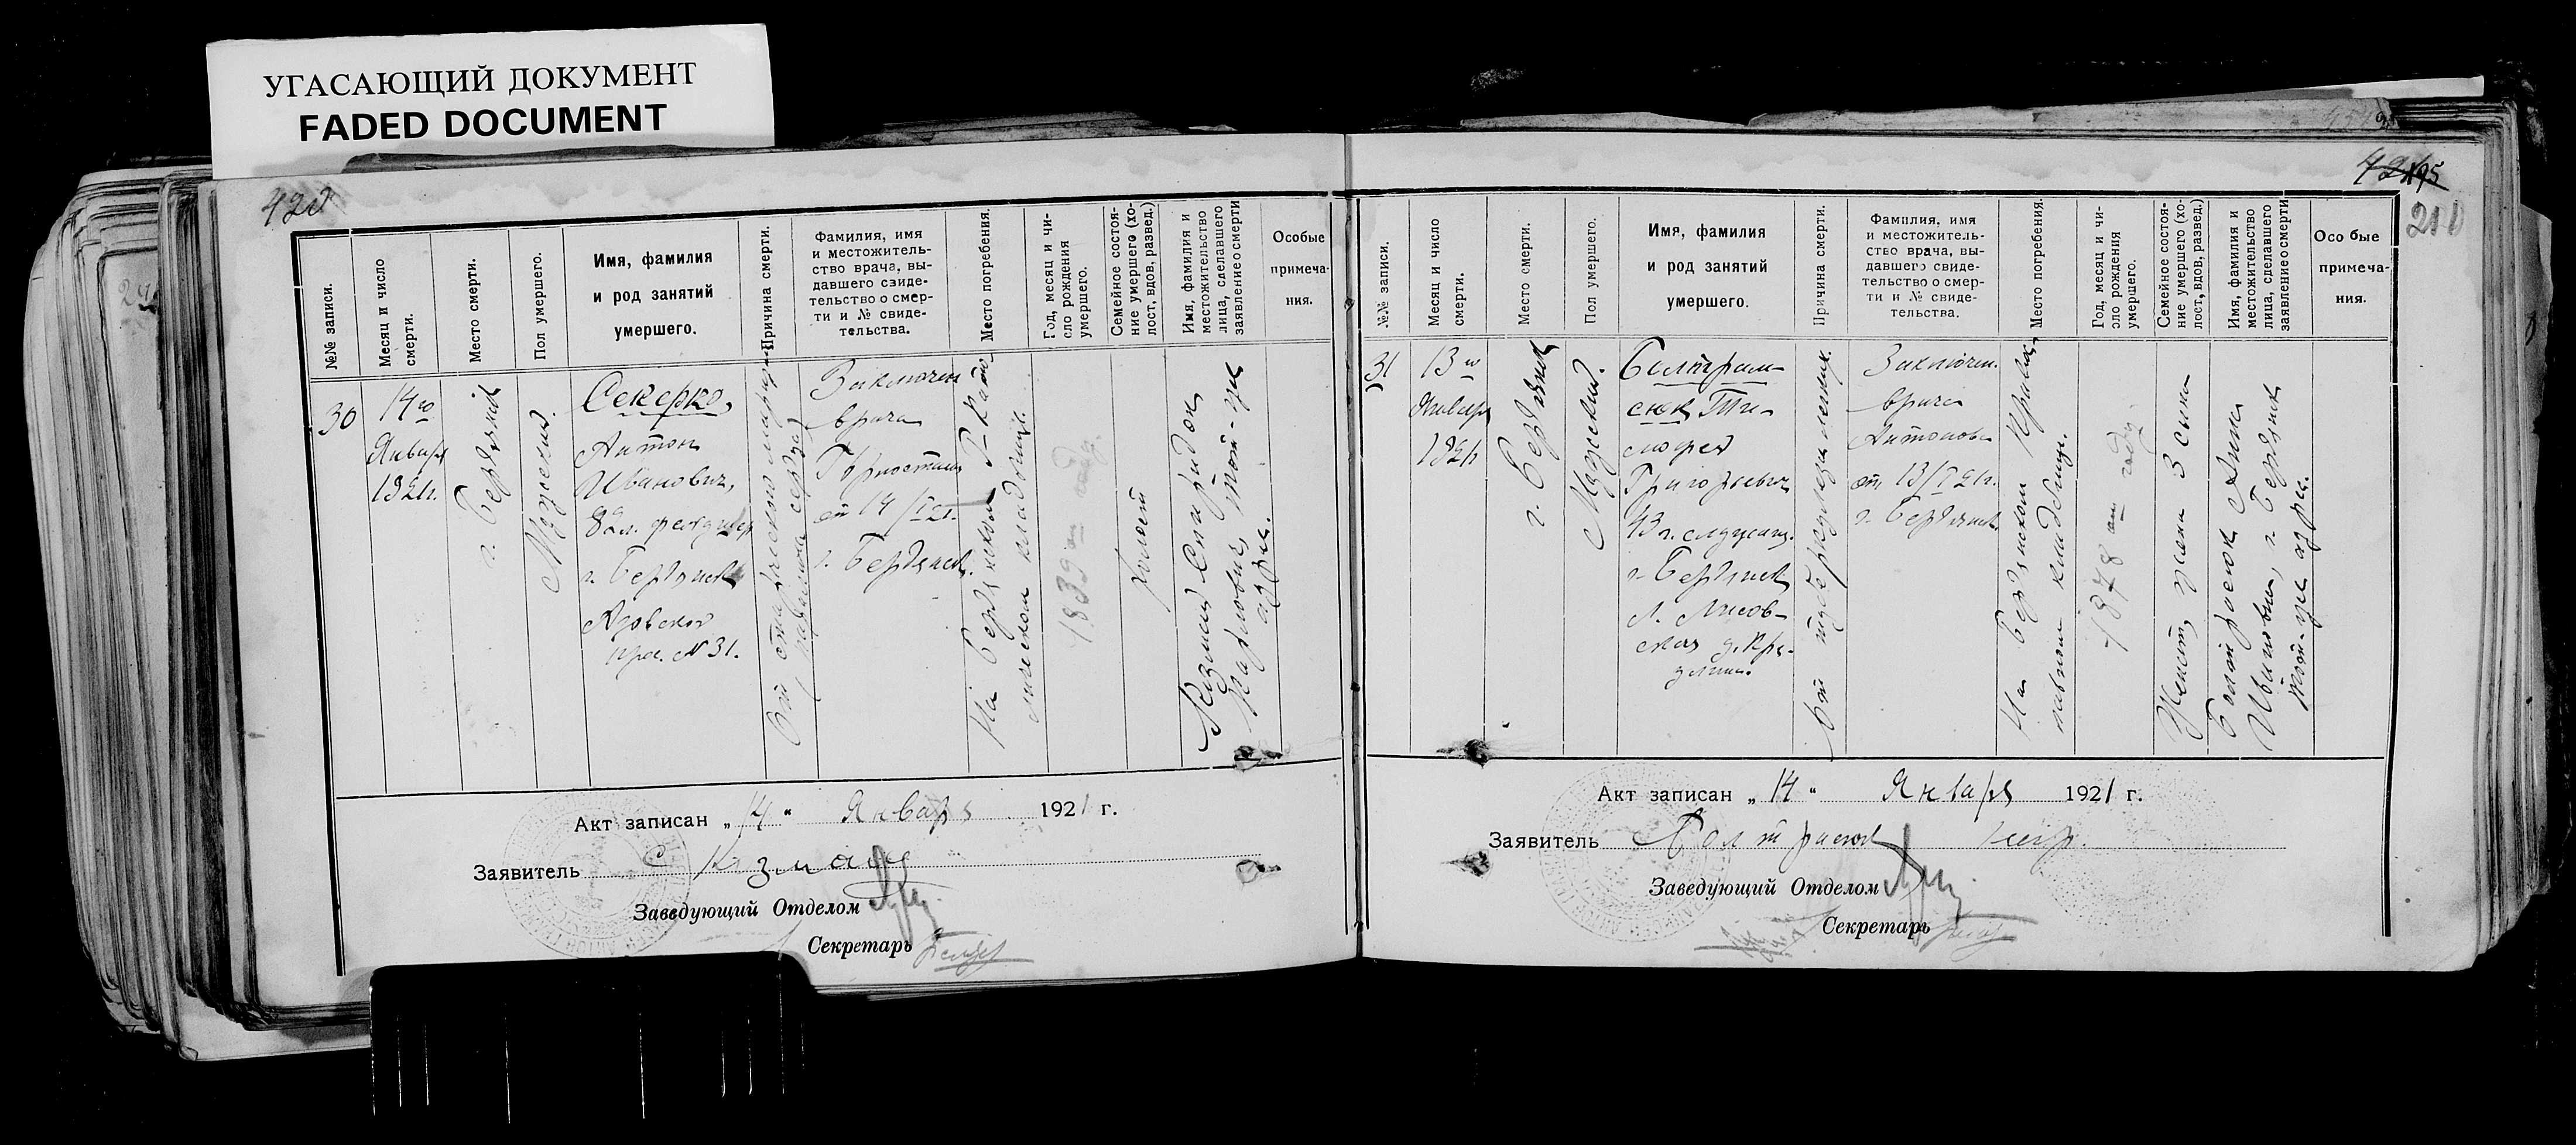 УГАСАЮЩИЙ ДОКУМЕНТ
FADED DOCUMENT
№№ записи.
Месяц и число
смерти.
Место смерти.
Пол умершего.
Имя, фамилия
и род занятий
умершего.
Причина смерти.
Фамилия, имя
и местожитель-
ство врача, вы-
давшего свиде-
тельство о смер-
ти и № свиде-
тельства.
Место погребения.
Год, месяц и чи-
сло рождения
умершего.
Семейное состоя-
ние умершего (хо-
лост, вдов, развед.)
Имя, фамилия и
местожительство
лица, сделавшего
заявление о смерти
Особые
примеча-
ния.
30
14го
Января
1921г.
г. Бердянск
Мужской.
Секерко,
Антон
Иванович,
82л. фельдшер
г. Бердянск
Азовской
прос. № 31.
От старческого маразма
(паралича сердца)
Заключен
врача
от 14/I 21г.
г. Бердянск.
На Бердянском Р-Като-
лическом кладбище.
1839 году.
Холост
Спиридон
Маркович, той-же
адрес.
Акт записан „14“ Января 1921 г.
Заявитель С Кизман
Заведующий Отделом
Секретарь
195
№№ записи.
Месяц и число
смерти.
Место смерти.
Пол умершего.
Имя, фамилия
и род занятий
умершего.
Причина смерти.
Фамилия, имя
и местожитель-
ство врача, вы-
давшего свиде-
тельство о смер-
ти и № свиде-
тельства.
Место погребения.
Год, месяц и чи-
сло рождения
умершего.
Семейное состоя-
ние умершего (хо-
лост, вдов, развед.)
Имя, фамилия и
местожительство
лица, сделавшего
заявление о смерти
Осо бые
примеча-
ния.
31
13го
Января
1921
г. Бердянск
Мужской.
Болтрам-
сюк Ти-
мофей
Григорьевич
43г. служащ.
г. Бердянск
Л. Лисов-
ская
От туберкулеза легких.
Заключен.
врача
Антонова
от 13/I 21г.
г. Бердянск
На Бердянском Правос-
лавном кладбище.
1878 году
Женат, жена 3 сына
Анна
Ивановна, г. Бердянск
той-же адрес.
Акт записан „14“ Января 1921 г.
Заявитель
Заведующий Отделом
Секретарь